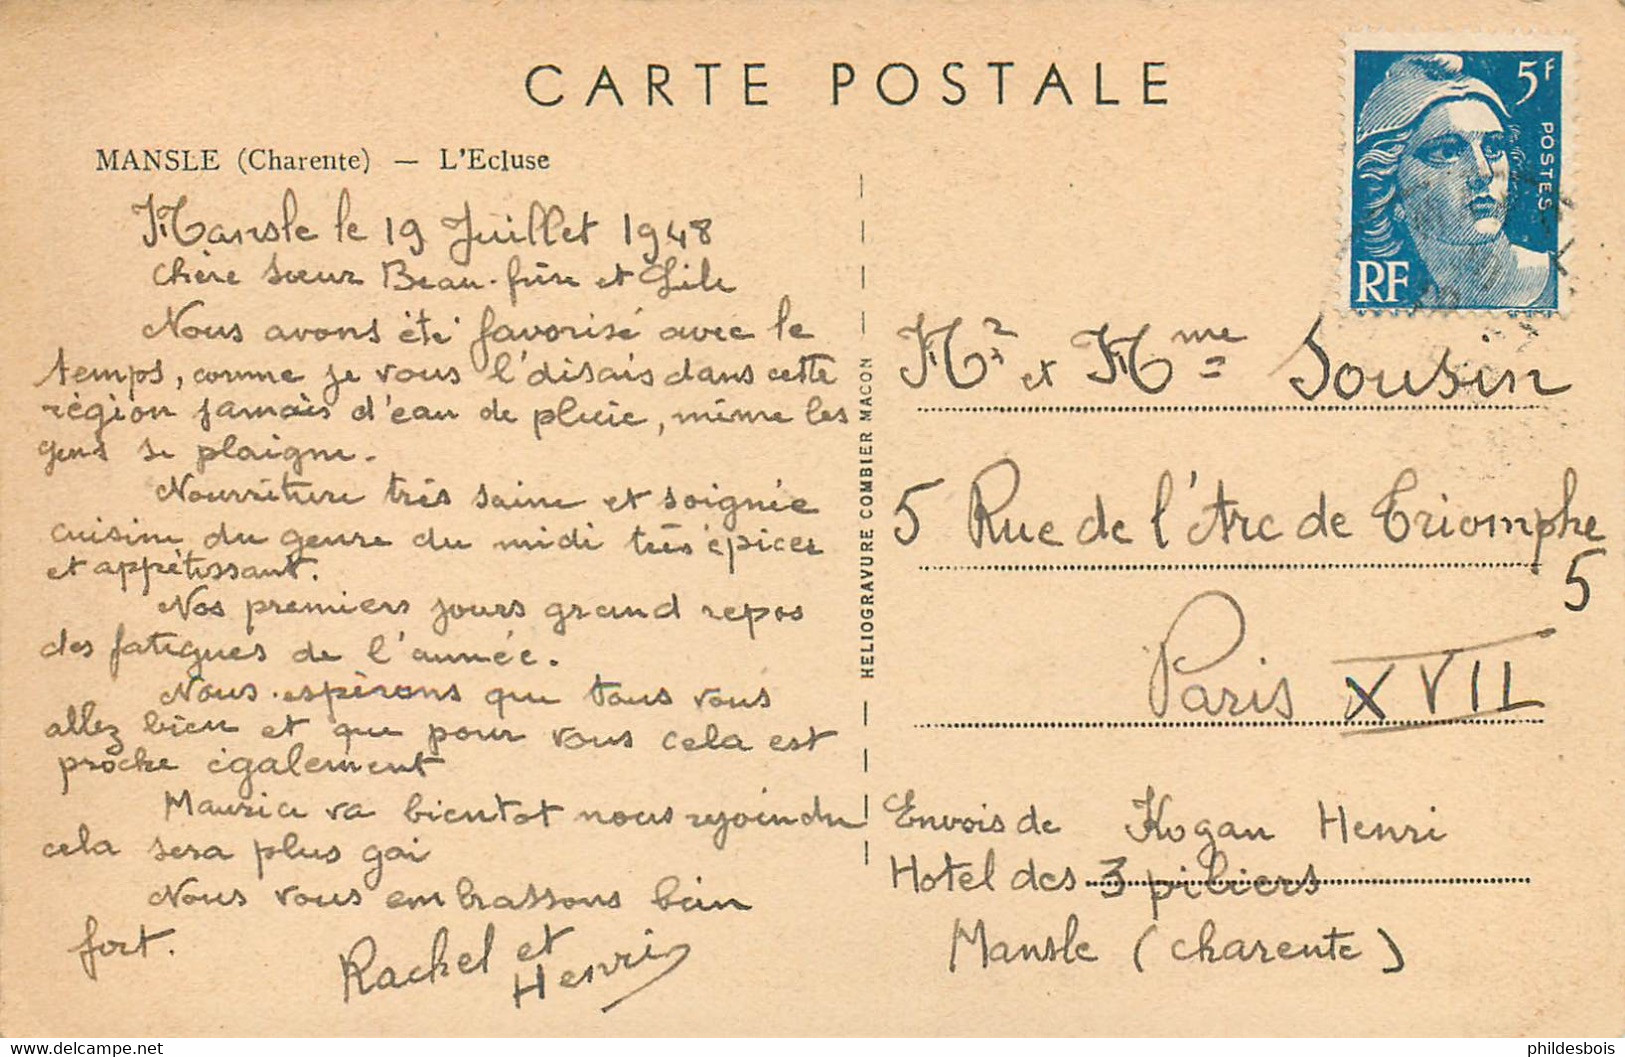 CARTE POSTALE
MANSLE (Charente) — L'Ecluse
Mansle le 19 Juillet 1948
chère soeur Beau-frère et Lili
Nous avons été favorisé avec le
temps, comme je vous l'disais dans cette
région jamais d'eau de pluie, même les
gens se plaigne.
Nourriture très saine et soignée
cuisine du genre du midi très épicée
et appétissant.
Nos premiers jours grand repos
des fatigues de l'année.
Nous espérons que tous vous
allez bien et que pour vous cela est
proche également
Maurice va bientot nous rejoindre
cela sera plus gai
Nous vous embrassons bien
fort.
Rachel et
Henri
HELIOGRAVURE COMBIER MACON
5f
POSTES
RF
Mr et Mme Sousin
5 Rue de l'Arc de Triomphe
5
Paris XVII
Envois de Kogan Henri
Hotel des 3 piliers
Mansle (charente)
phildesbois